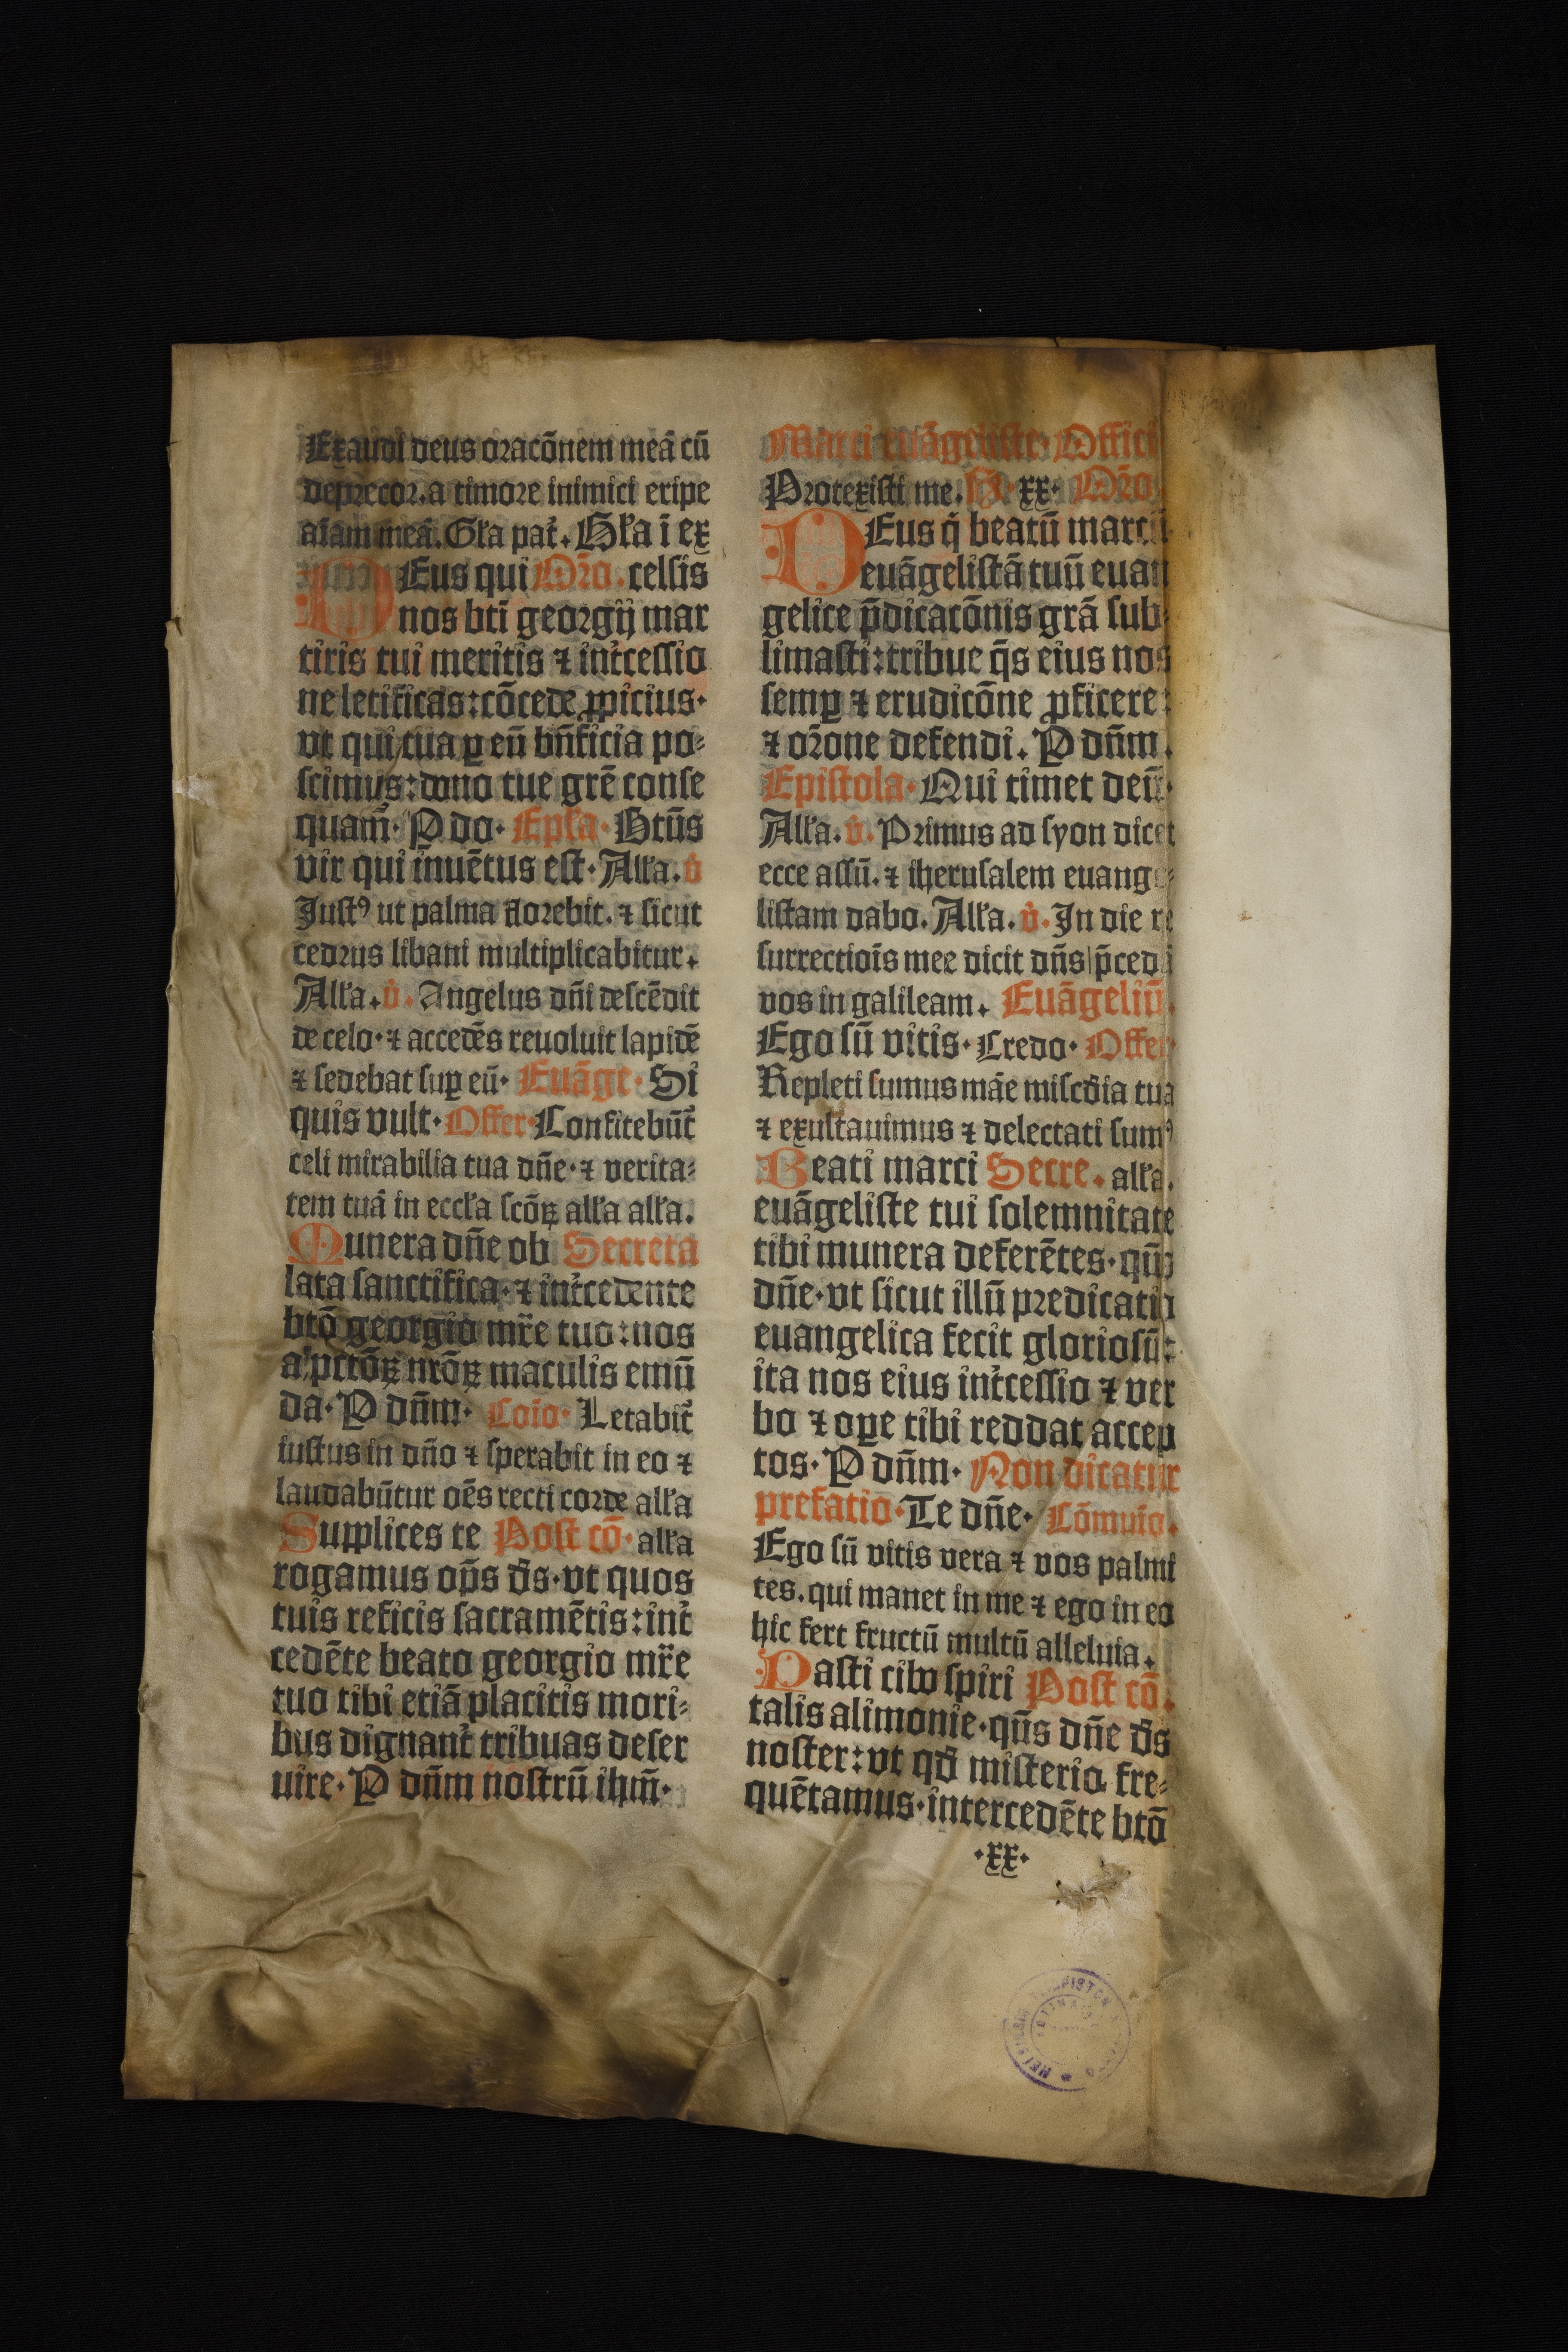 Exaudi deus oracōnem meā cū
deprecor. a timore inimici eripe
aīam meā. Gła pat᷑. Hła ī ex
DEus qui Or̄o. celsis
nos bt̄i georgij mar
tiris tui meritis ⁊ int᷑cessio
ne letificas: cōcede ꝓpicius·
vt qui tua ꝑ eū bn̄ficia po⸗
scimus: dono tue gr̄e conse
quam̄· P do· Epła· Btūs
vir qui inuētus est· Alła. v̊
Justꝰ ut palma florebit. ⁊ sicut
cedrus libani multiplicabitur.
Alła. v̊. Angelus dn̄i descēdit
de celo· ⁊ accedēs reuoluit lapidē
⁊ sedebat suꝑ eū· Euāge· Si
quis vult· Offer· Confitebūt᷑
celi mirabilia tua dn̄e· ⁊ verita⸗
tem tuā in eccła scōꝝ alła alła.
Munera dn̄e ob Secreta
lata sanctifica· ⁊ int᷑cedente
btō georgio mr̄e tuo: nos
a pctōꝝ nrōꝝ maculis emū
da· P dn̄m· Coīo· Letabit᷑
iustus in dn̄o ⁊ sperabit in eo ⁊
laudabūtur oēs recti corde alła
Supplices te Post cō· alła
rogamus op̄s ds̄· vt quos
tuis reficis sacramētis: int᷑
cedēte beato georgio mr̄e
tuo tibi etiā placitis mori⸗
bus dignant᷑ tribuas deser
uire· P dn̄m nostrū ihm̄·
Marci euāgeliste· Offici
Protexisti me. xx· Or̄o
DEus q̇ beatū marcū
euāgelistā tuū euan
gelice p̄dicacōnis grā sub⸗
limasti: tribue q̄s eius nos
semꝑ ⁊ erudicōne ꝓficere:
⁊ or̄one defendi. P dn̄m.
Epistola· Qui timet deū·
Alła. v̊. Primus ad syon dicet
ecce assū. ⁊ iherusalem euange⸗
listam dabo. Alła. v̊. In die re
surrectiōis mee dicit dn̄s p̄ceda
vos in galileam. Euāgeliū.
Ego sū vitis· Credo· Offer
Repleti sumus māe mīscd̄ia tua
⁊ exultauimus ⁊ delectati sumꝰ
Beati marci Secre. alła.
euāgeliste tui solemnitate
tibi munera deferētes· qūs
dn̄e· vt sicut illū predicatio
euangelica fecit gloriosū:
ita nos eius int᷑cessio ⁊ ver
bo ⁊ oꝑe tibi reddat accep
tos· P dn̄m· Non dicatur
prefatio· Te dn̄e· Cōmuio.
Ego sū vitis vera ⁊ vos palmi
tes. qui manet in me ⁊ ego in eo
hic fert fructū multū alleluia.
Pasti cibo spiri Post cō.
talis alimonie· qūs dn̄e ds̄
noster: vt qd̄ misterio fre⸗
quētamus· intercedēte btō
·xx·